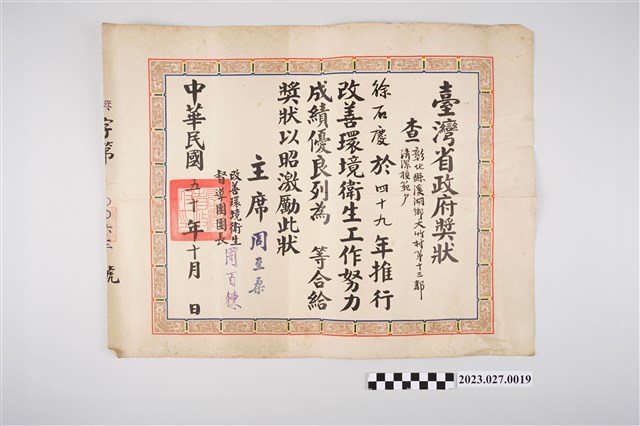 臺灣省政府獎狀
查
彰化縣溪湖鄉大竹村第十三鄰
清潔模範戶
徐石慶於四十九年推行
改善環境衛生工作努力
成績優良列為 等合給
獎狀以昭激勵此狀
主席周至柔
改善環境衛生
督導團團長
周百鍊
中華民國五十年十月 日
字第
號
2023.027.0019